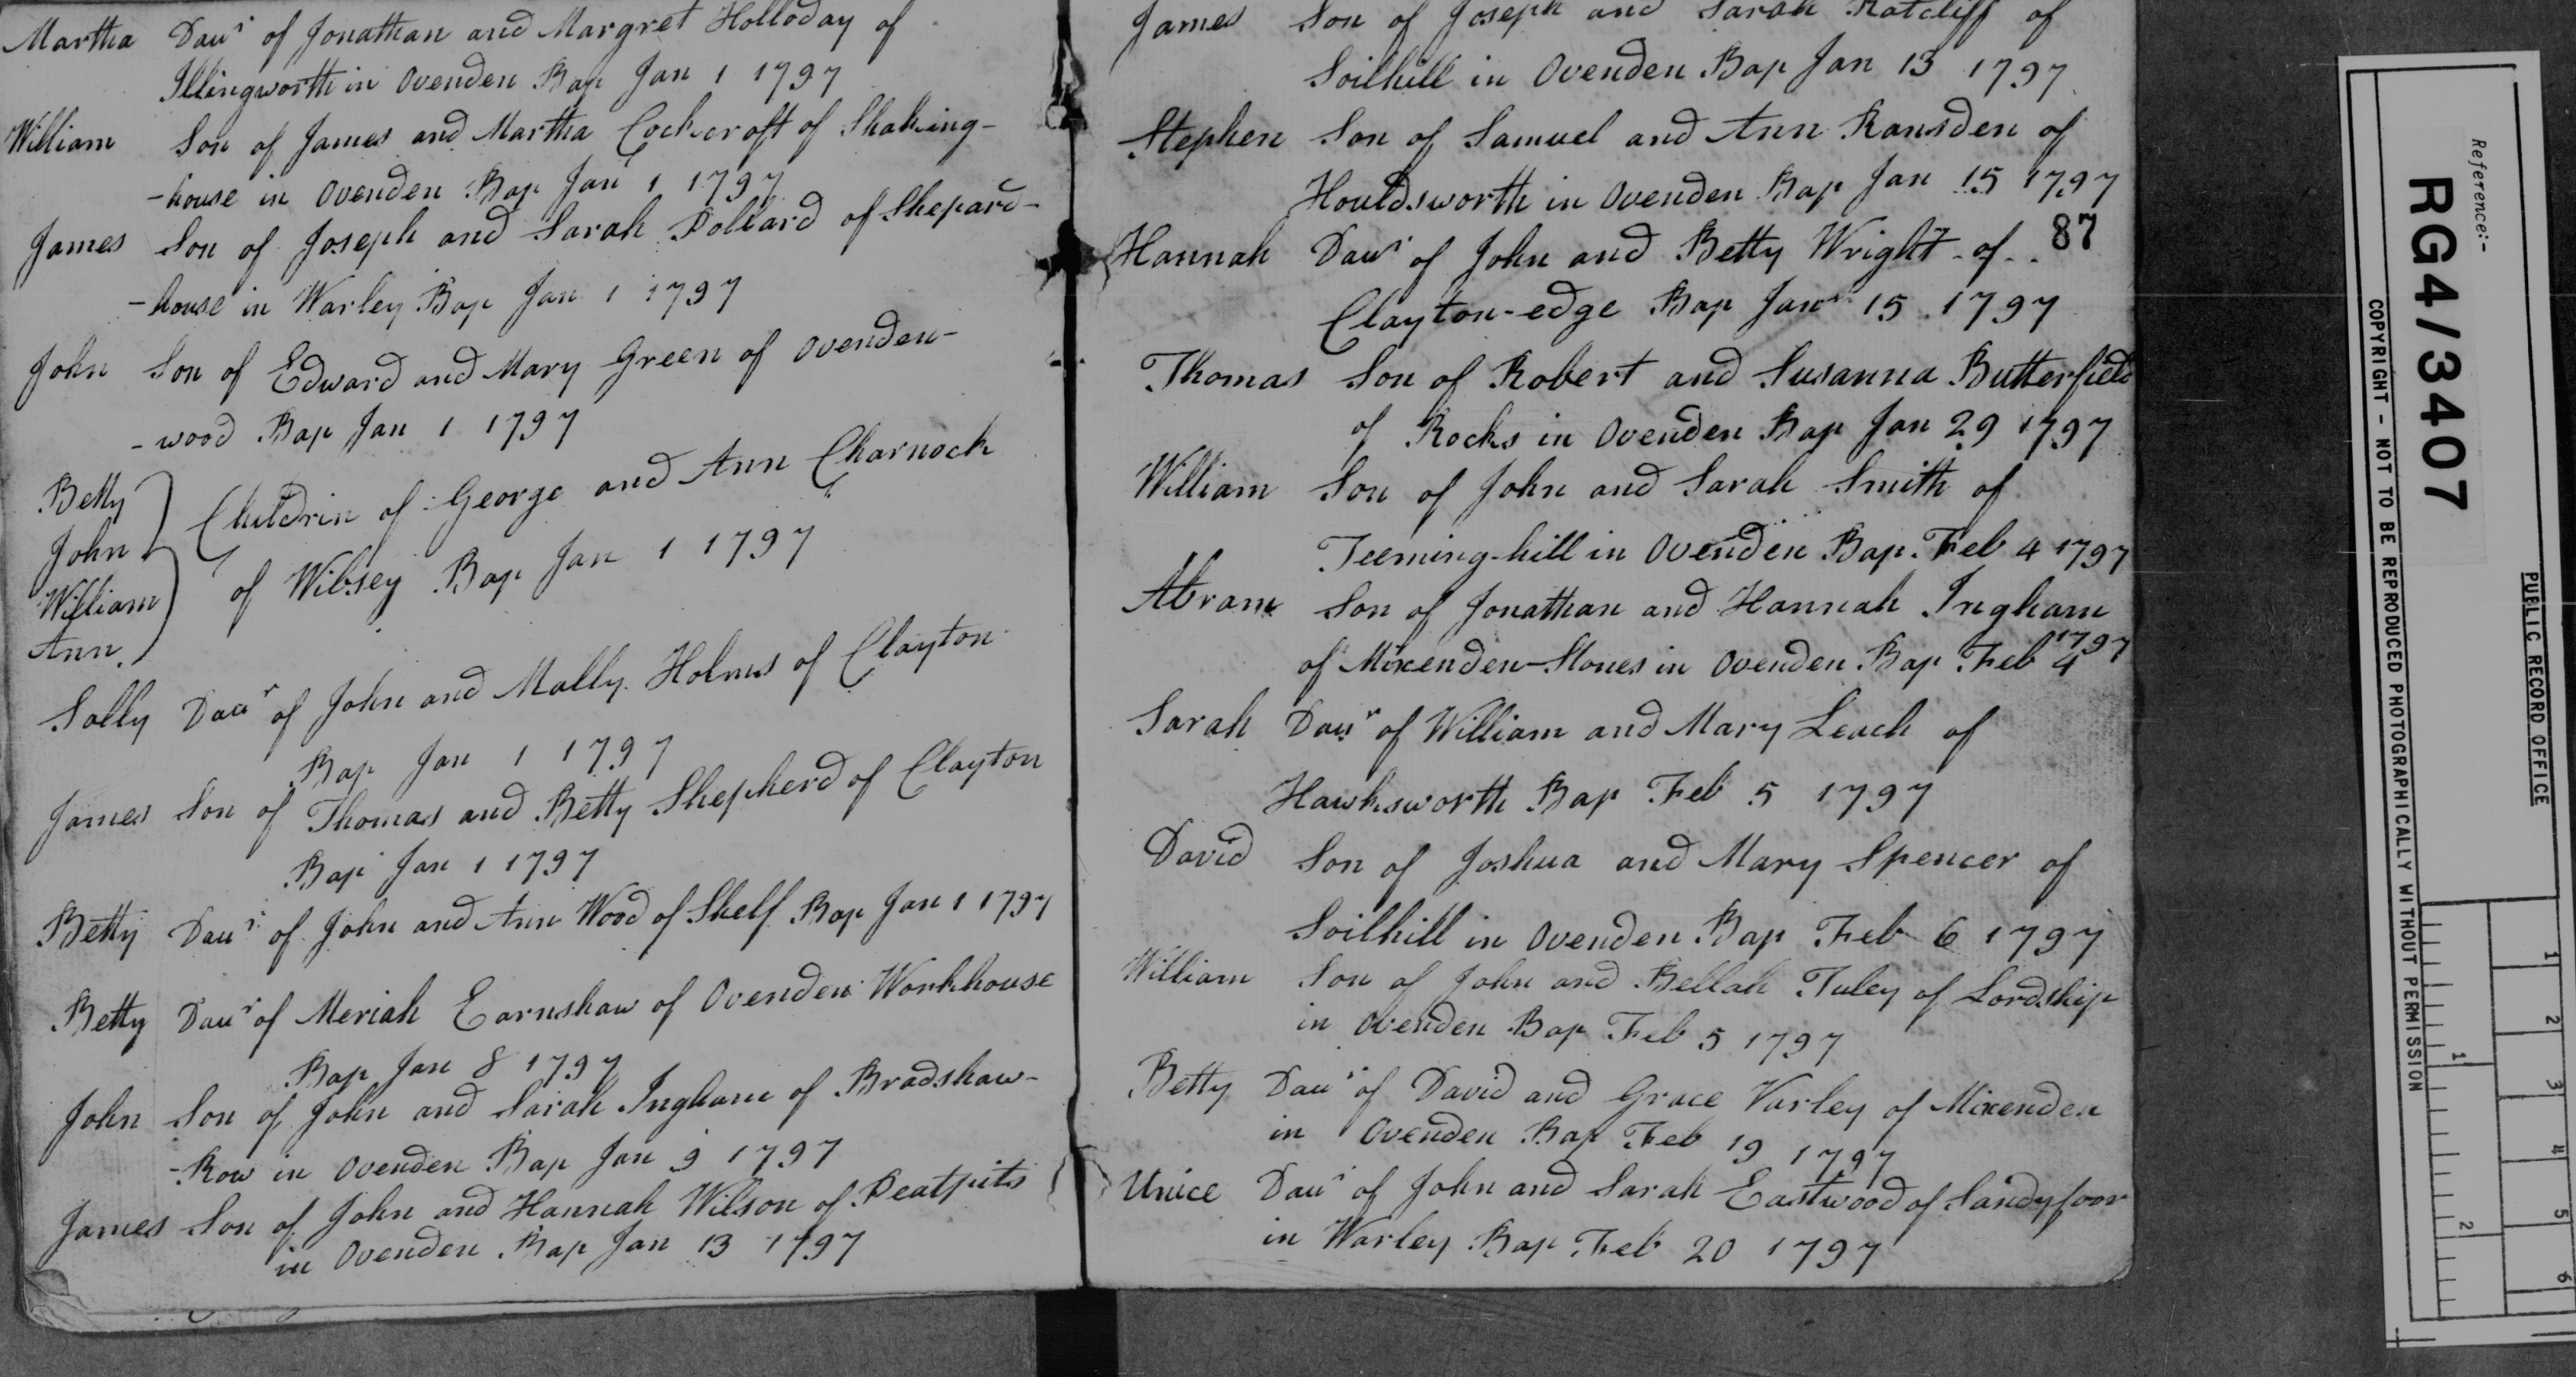 Martha Daur of Jonathan and Margret Holloday of
Illingworth in Ovenden Bap Jan 1 1797
William Son of James and Martha Cockcroft of Shaking-
-house in Ovenden Bap Jan 1 1797
James Son of Joseph and Sarah Pollard of Shepard-
-house in Warley Bap Jan 1 1797
John Son of Edward and Mary Green of Ovenden-
-wood Bap Jan 1 1797
Betty
John
William
Ann
Childrin of George and Ann Charnock
of Wibsey Bap Jan 1 1797
Sally Daur of John and Mally Holms of Clayton
Bap Jan 1 1797
James Son of Thomas and Betty Shepherd of Clayton
Bap Jan 1 1797
Betty Daur of John and Ann Wood of Shelf Bap Jan 1 1797
Betty Daur of Meriah Earnshaw of Ovenden Workhouse
Bap Jan 8 1797
John Son of John and Sarah Ingham of Bradshaw-
-Row in Ovenden Bap Jan 9 1797
James Son of John and Hannah Wilson of Peatpits
in Ovenden Bap Jan 13 1797
James Son of Joseph and Sarah Ratcliff of
Soilhill in Ovenden Bap Jan 13 1797
Stephen Son of Samuel and Ann Ransden of
Houldsworth in Ovenden Bap Jan 15 1797
87
Hannah Daur of John and Betty Wright of
Clayton-edge Bap Janr 15 1797
Thomas Son of Robert and Susanna Butterfield
of Rocks in Ovenden Bap Jan 29 1797
William Son of John and Sarah Smith of
Teeming-hill in Ovenden Bap Feb 4 1797
Abram Son of Jonathan and Hannah Ingham
of Mixenden-Stones in Ovenden Bap Feb 4 1797
Sarah Daur of William and Mary Leach of
Hawksworth Bap Feb 5 1797
David Son of Joshua and Mary Spencer of
Soilhill in Ovenden Bap Feb 6 1797
William Son of John and Bellah Tuley of Lordship
in Ovenden Bap Feb 5 1797
Betty Daur of David and Grace Varley of Mixenden
in Ovenden Bap Feb 19 1797
Unice Daur of John and Sarah Eastwood of Sandyfoor
in Warley Bap Feb 20 1797
PUBLIC RECORD OFFICE
Reference:-
RG4/3407
COPYRIGHT - NOT TO BE REPRODUCED PHOTOGRAPHICALLY WITHOUT PERMISSION
1 2 3 4 5 6
1 2